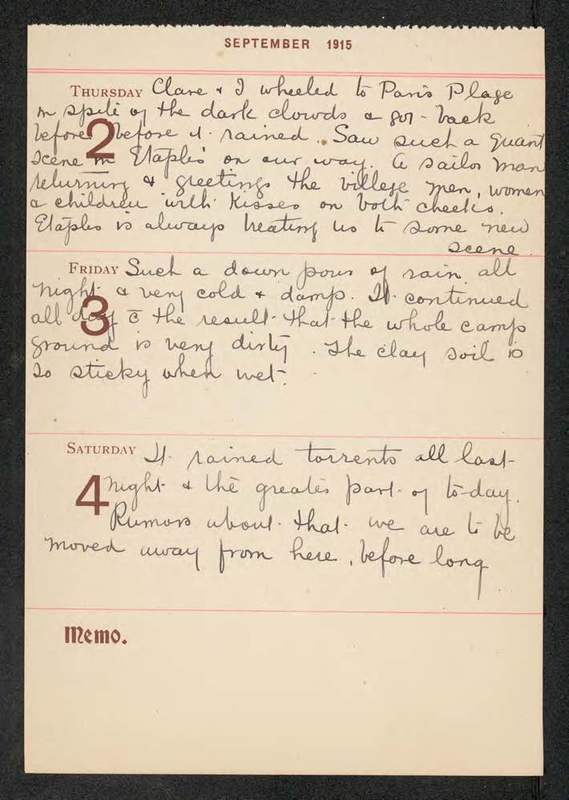 SEPTEMBER 1915
THURSDAY Clare & I wheeled to Paris Plage
in spite of the dark clowds & got back
before before it rained. Saw such a quant
2
scene in Etaples on our way. A sailor man
returning & greetings the village men, women
& children with kisses on both cheeks.
Etaples is always treating us to some new
scene.
FRIDAY Such a down pour of rain all
night & very cold & damp. It continued
3
all day c̄ the result that the whole camp
ground is very dirty. The clay soil is
so sticky when wet.
SATURDAY It rained torrents all last
4
night & the greates part of to-day.
Rumors about that we are to be
moved away from here, before long
Memo.